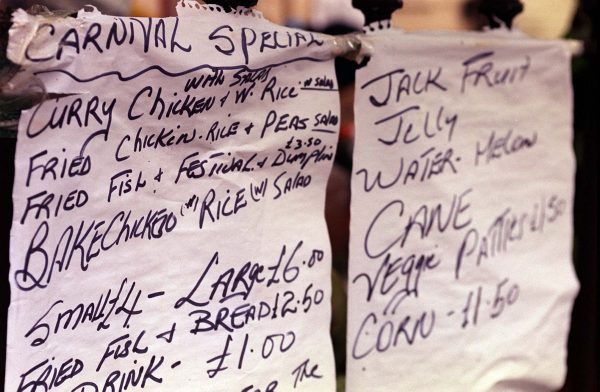 CARNIVAL SPECIAL
WITH SALAD
CURRY CHICKEN + W. RICE W SALAD
FRIED CHICKEN. RICE & PEAS SALAD
£3.50
FRIED FISH & FESTIVAL & Dumplin
BAKE CHICKEN (W) RICE (W) SALAD
SMALL £4 - LARGE £6.00
FRIED FISH & BREAD £2.50
DRINK - £1.00
FOR THE
JACK FRUIT
Jelly
WATER-Melon
CANE
Veggie PATTIES £1.50
CORN - £1.50